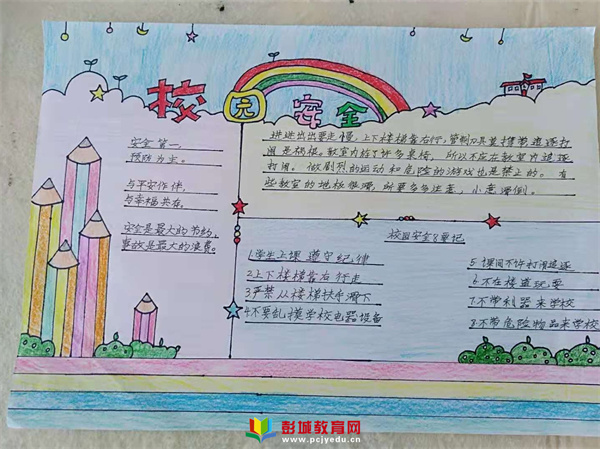 校园安全
安全第一,
预防为主。
与平安作伴,
与幸福共在。
安全是最大的节约,
事故是最大的浪费。
进进出出要走慢,上下楼梯靠右行,管制刀具莫携带,追逐打
闹是祸根。教室内放了许多桌椅,所以不应在教室内追逐
打闹。做剧烈的运动和危险的游戏也是禁止的。有
些教室的地板很滑,所要多多注意,小意滑倒。
校园安全8要记
1学生上课遵守纪律
2上下楼梯靠右行走
3严禁从楼梯扶手滑下
4不要乱摸学校电器设备
5课间不许打闹追逐
6不在楼道玩耍
7不带利器来学校
8不带危险物品来学校
彭城教育网
www.pcjyedu.cn